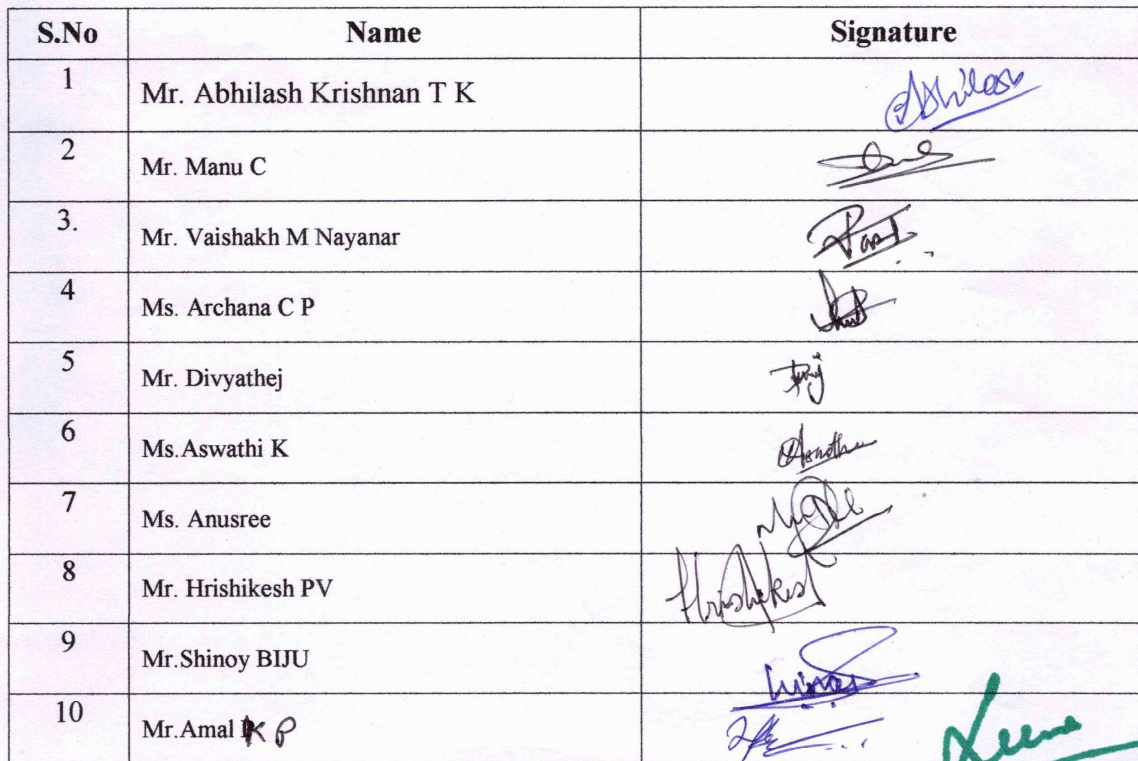 S.No Name Signature
1 Mr. Abhilash Krishnan T K Abhilash
2 Mr. Manu C
3. Mr. Vaishakh M Nayanar
4 Ms. Archana C P
5 Mr. Divyathej
6 Ms.Aswathi K Aswathi
7 Ms. Anusree
8 Mr. Hrishikesh PV Hrishikesh
9 Mr.Shinoy BIJU
10 Mr.Amal K P